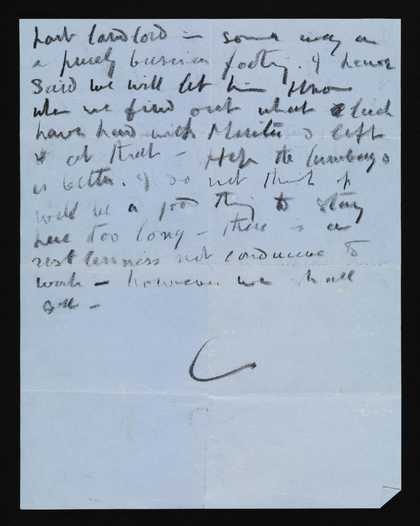 Past landlord – some way on
a purely business footing. I have
said we will let him know
when we find out what luck
have had with & left
it at that – Hope the lumbago
is better. I do not think it
will be a good thing to stay
here too long – there is a
restlessness not conducive to
work – however we shall
see –
C